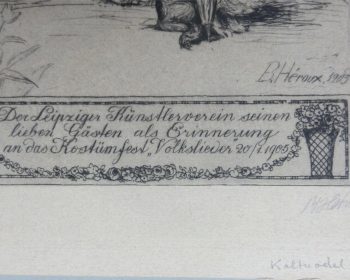 B. Héroux, 1905
Der Leipziger Künstlerverein seinen
lieben Gästen als Erinnerung
an das Kostümfest „Volkslieder 20/1 1905
Kaltnadel